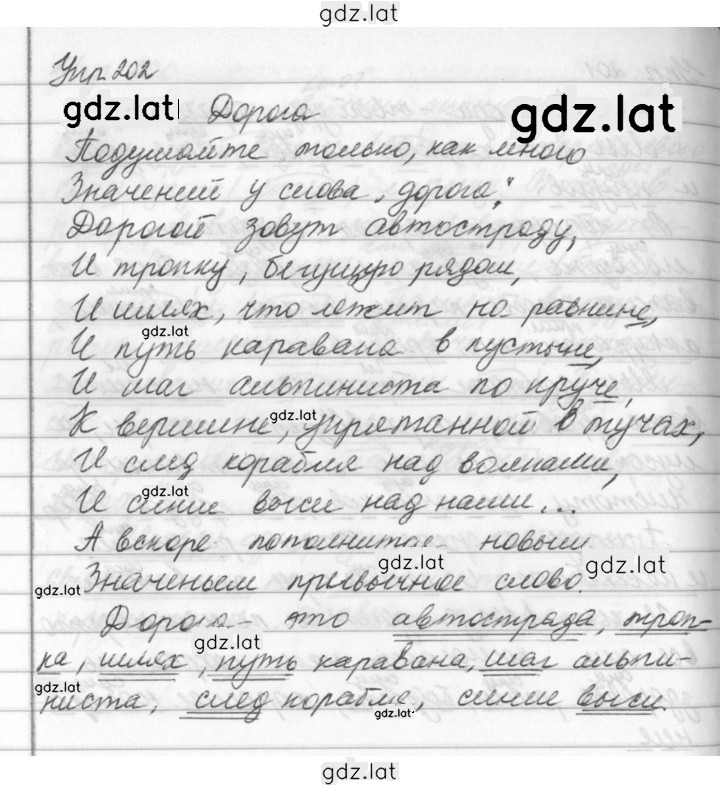 gdz.lat
Упр. 202
gdz.lat Дорога gdz.lat
Подумайте только, как много
Значений у слова „дорога“:
Дорогой зовут автостраду,
И тропку, бегущую рядом,
И шлях, что лежит на равнине,
gdz.lat
И путь каравана в пустыне,
И шаг альпиниста по круче,
gdz.lat
К вершине, упрятанной в тучах,
И след корабля над волнами,
gdz.lat
И синие выси над нами...
А вскоре пополнится новым
gdz.lat gdz.lat
gdz.lat Значеньем привычное слово.
Дорога - это автострада, троп-
gdz.lat
ка, шлях, путь каравана, шаг альпи-
gdz.lat
ниста, след корабля, синие выси.
gdz.lat
gdz.lat